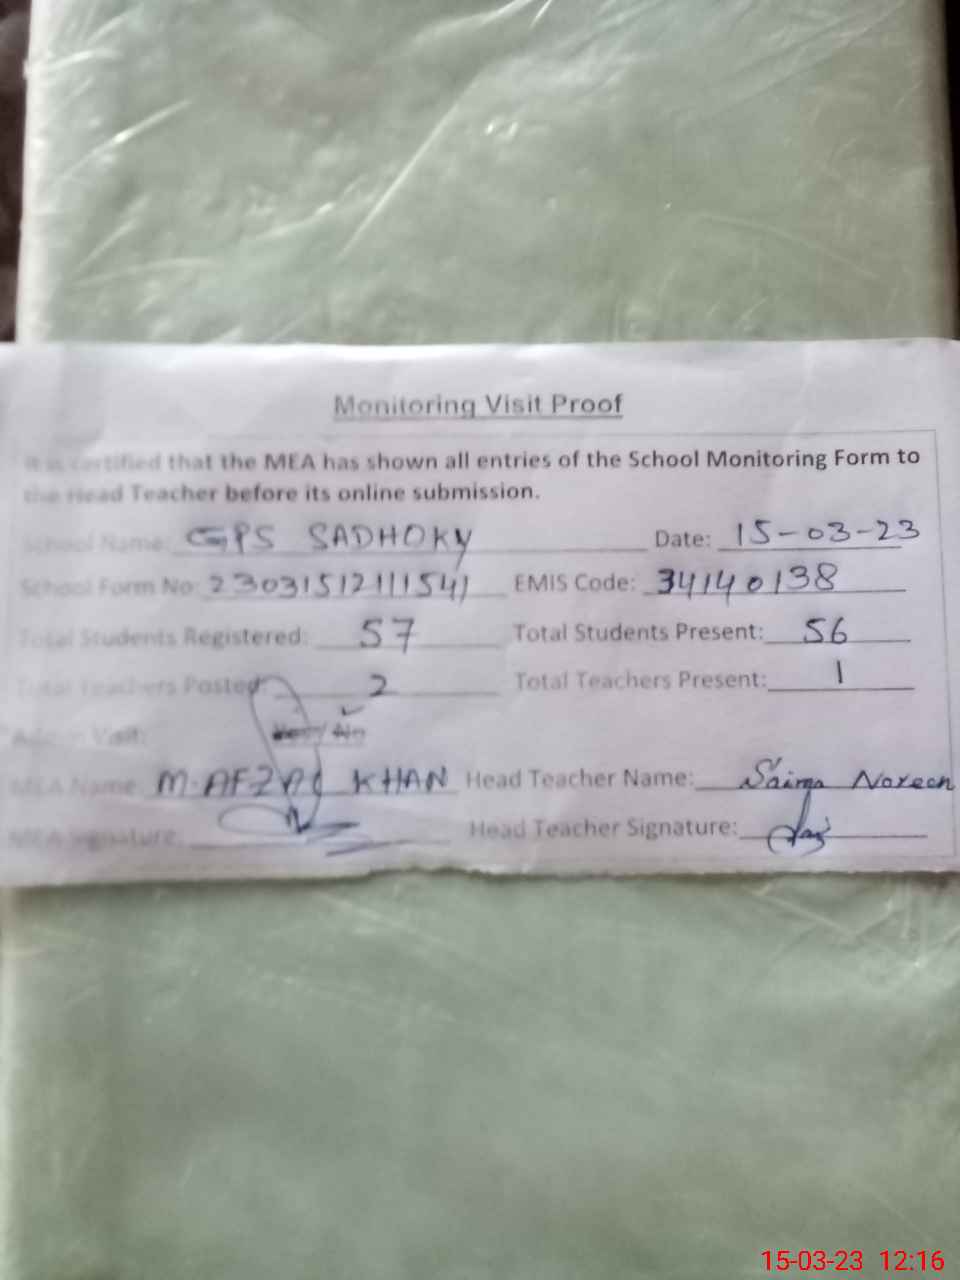 Monitoring Visit Proof
It is certified that the MEA has shown all entries of the School Monitoring Form to
the Head Teacher before its online submission.
School Name: GPS SADHOKY Date: 15-03-23
School Form No: 23031512111541 EMIS Code: 34140138
Total Students Registered: 57 Total Students Present: 56
Total Teachers Posted: 2 Total Teachers Present: 1
Admin Visit: Yes / No
MEA Name: M. AFZAL KHAN Head Teacher Name: Saima Noreen
MEA Signature: Head Teacher Signature:
15-03-23 12:16